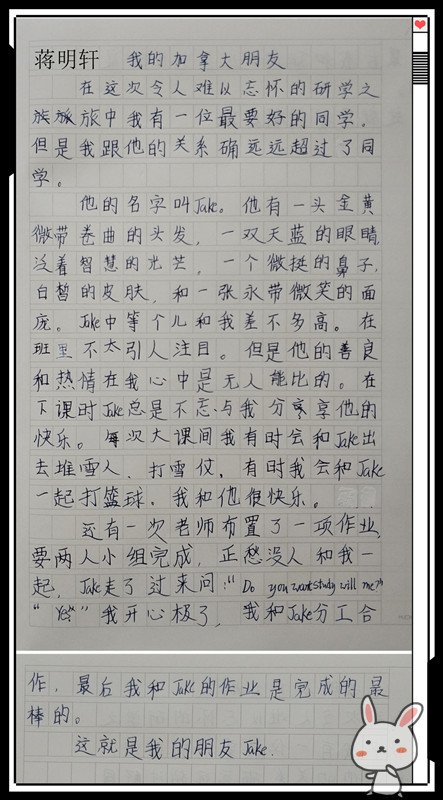 蒋明轩 我的加拿大朋友
在这次令人难以忘怀的研学之
旅中我有一位最要好的同学。
但是我跟他的关系确远远超过了同
学。
他的名字叫Jake。他有一头金黄
微带卷曲的头发，一双天蓝的眼睛，
泛着智慧的光芒。一个微挺的鼻子，
白皙的皮肤，和一张永带微笑的面
庞。Jake中等个儿和我差不多高。在
班里不太引人注目。但是他的善良
和热情在我心中是无人能比的。在
下课时Jake总是不忘与我分享他的
快乐。每次大课间我有时会和Jake出
去堆雪人、打雪仗，有时我会和Jake
一起打篮球，我和他很快乐。
还有一次老师布置了一项作业，
要两人小组完成，正愁没人和我一
起，Jake走了过来问：“Do you want study will me?”
“Yes”我开心极了，我和Jake分工合
作，最后我和Jake的作业是完成的最
棒的。
这就是我的朋友Jake.